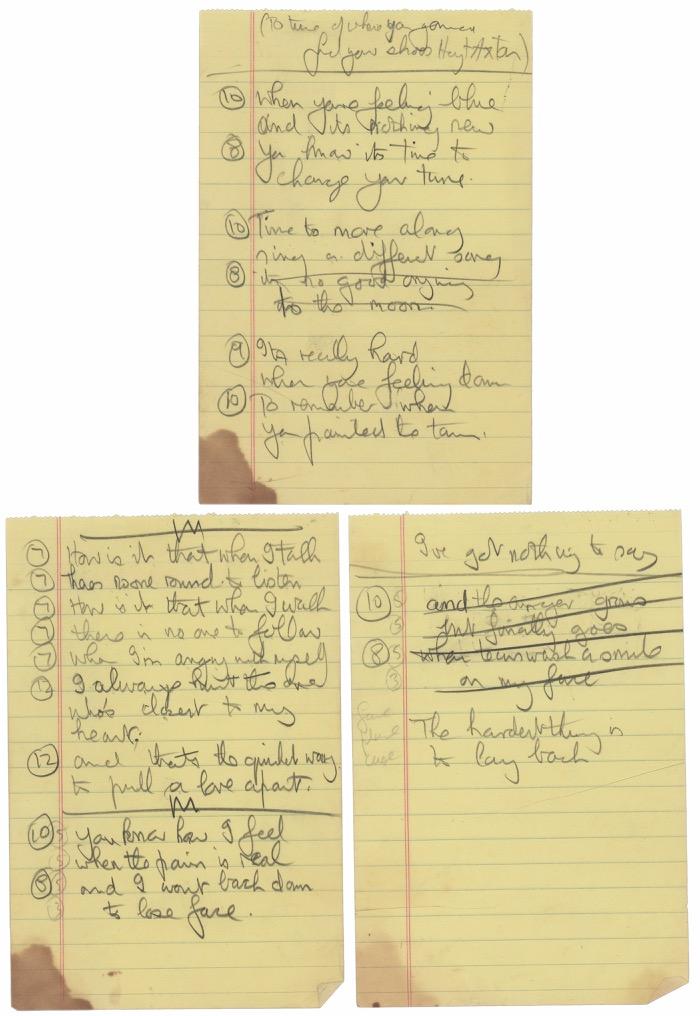 (To tune of when you gonna
fix your shoes Hoyt Axton)
10 When your feeling blue
and its nothing new
8 You know its time to
change your tune.
10 Time to move along
sing a different song
8 its no good crying
to the moon
9 Its really hard
when your feeling down
10 To remember when
you painted the town.
7 How is it that when I talk
7 theres noone round to listen
7 How is it that when I walk
7 there is no one to follow
7 When I'm angry with myself
12 I always hurt the one
who's closest to my
heart;
12 and thats the quickest way
to pull a love apart.
10 5 you know how I feel
5 when the pain is real
8 5 and I wont back down
3 to lose face.
I've got nothing to say
10 5 and the anger grows
5 but finally goes
8 5 when tears wash a smile
3 on my face
The hardest thing is
to lay back